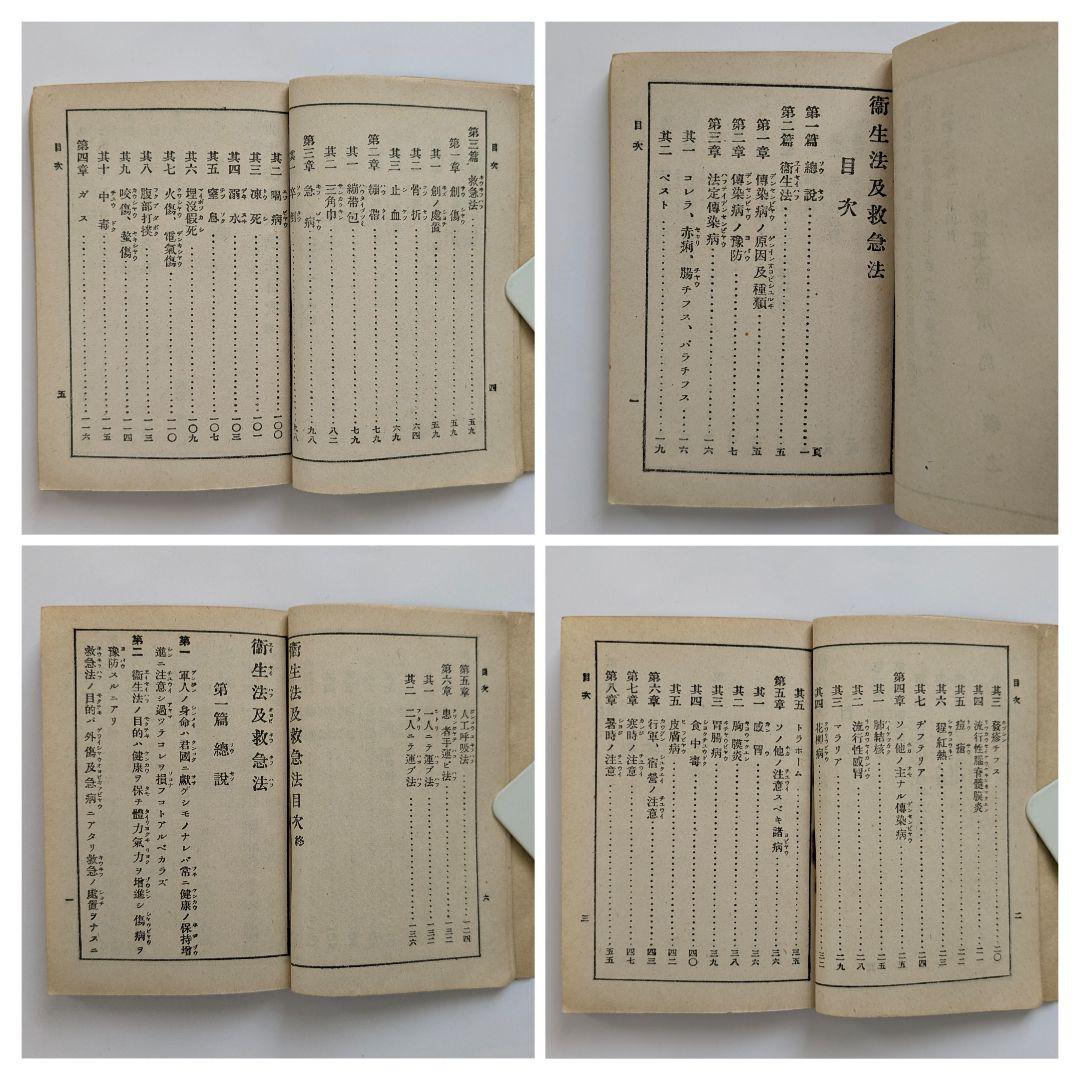 衞生法及救急法
目次
第一篇 總説……一頁
第二篇 衞生法……五
第一章 傳染病ノ原因及種類……五
第二章 傳染病ノ豫防……七
第三章 法定傳染病……一六
其一 コレラ、赤痢、腸チフス、パラチフス……一六
其二 ペスト……一九
目次
一
目次
二
其三 發疹チフス……二〇
其四 流行性腦脊髓膜炎……二一
其五 痘瘡……二二
其六 猩紅熱……二三
其七 ヂフテリア……二四
第四章 ソノ他ノ主ナル傳染病……二五
其一 肺結核……二五
其二 流行性感冒……二八
其三 マラリア……二九
其四 花柳病……三二
其五 トラホーム……三五
第五章 ソノ他ノ注意スベキ諸病……三六
其一 感冒……三六
其二 胸膜炎……三八
其三 胃腸病……三九
其四 食中毒……四〇
其五 皮膚病……四二
第六章 行軍、宿營ノ注意……四三
第七章 寒時ノ注意……四七
第八章 暑時ノ注意……五五
目次
三
目次
四
第三篇 救急法……五九
第一章 創傷……五九
其一 創ノ處置……五九
其二 骨折……六四
其三 止血……六九
第二章 繃帶……七九
其一 繃帶包……七九
其二 三角巾……八二
第三章 急病……九八
其一 卒倒……九八
其二 暍病……一〇〇
其三 凍死……一〇一
其四 溺水……一〇三
其五 窒息……一〇七
其六 埋沒假死……一〇九
其七 火傷、電氣傷……一一〇
其八 腹部打撲……一一三
其九 咬傷、螫傷……一一四
其十 中毒……一一五
第四章 ガス……一一六
目次
五
目次
六
第五章 人工呼吸法……一二四
第六章 患者手運ビ法……一三二
其一 一人ニテ運ブ法……一三二
其二 二人ニテ運ブ法……一三六
衞生法及救急法目次 終
衞生法及救急法
第一篇 總説
第一 軍人ノ身命ハ君國ニ獻グシモノナレバ常ニ健康ノ保持增
進ニ注意シ過ツテコレヲ損フコトアルベカラズ
第二 衞生法ノ目的ハ健康ヲ保チ體力氣力ヲ增進シ傷病ヲ
豫防スルニアリ
救急法ノ目的ハ外傷及急病ニアタリ救急ノ處置ヲナスニ
一